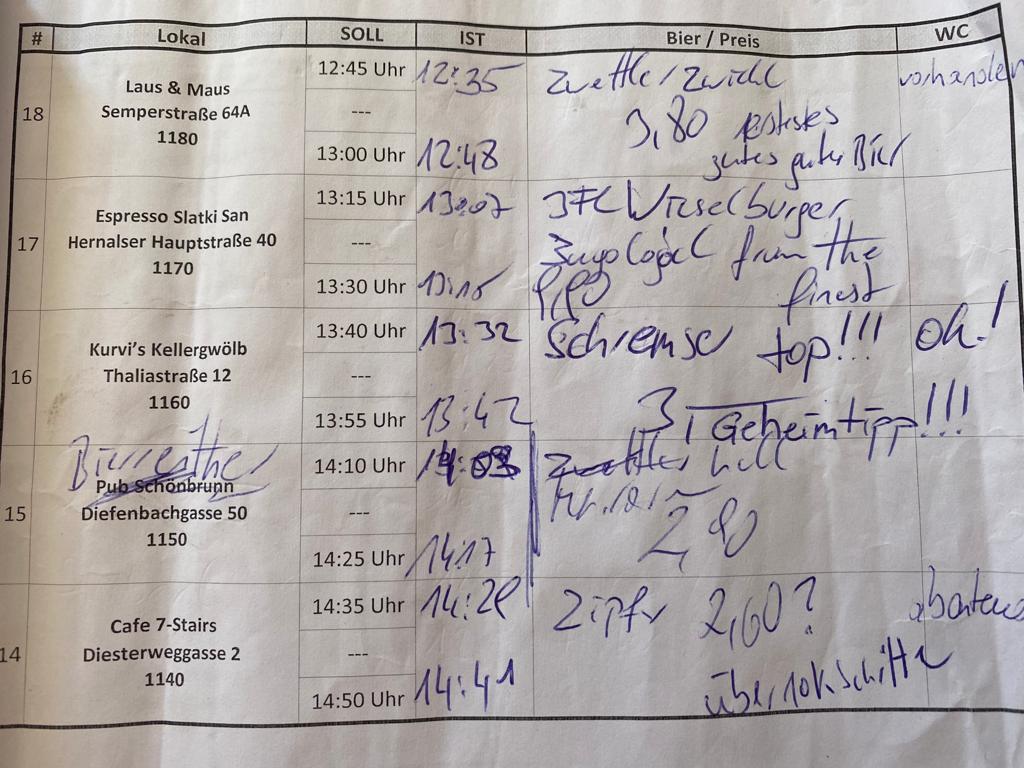 # Lokal SOLL IST Bier / Preis WC
18
Laus & Maus
Semperstraße 64A
1180
12:45 Uhr
---
13:00 Uhr
12:35
12:48
Zwettler Zwickl
3,80
gutes Bier
vorhanden
17
Espresso Slatki San
Hernalser Hauptstraße 40
1170
13:15 Uhr
---
13:30 Uhr
13:07
Wieselburger
from the
finest
16
Kurvi's Kellergwölb
Thaliastraße 12
1160
13:40 Uhr
---
13:55 Uhr
13:32
13:42
Schremser top!!!
3,- Geheimtipp!!!
oh!
15
Pub Schönbrunn
Diefenbachgasse 50
1150
14:10 Uhr
---
14:25 Uhr
14:03
14:17
Zwettler hell
2,90
14
Cafe 7-Stairs
Diesterweggasse 2
1140
14:35 Uhr
---
14:50 Uhr
14:41
Zipfer 2,60?